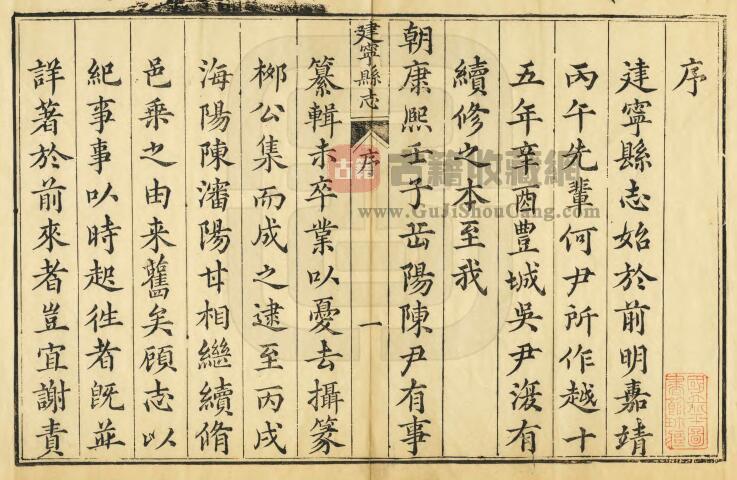 序
建寧縣志始於前明嘉靖
丙午先輩何尹所作越十
五年辛酉豊城吳尹湲有
續修之本至我
朝康熈壬子岳陽陳尹有事
建寧縣志
序
一
纂輯未卒業以憂去攝篆
栁公集而成之逮至丙戌
海陽陳瀋陽甘相繼續脩
邑乗之由来舊矣顧志以
紀事事以時起徃者旣並
詳著於前來者豈宜謝責
古籍
古籍收藏網
www.GuJiShouCang.com